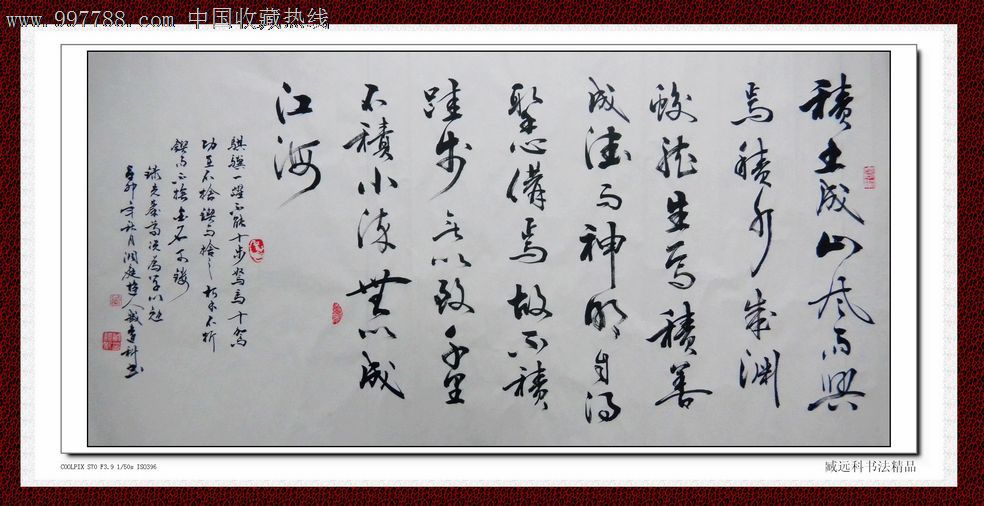 www.997788.com 中国收藏热线
積土成山風雨興
焉積水成淵
蛟龍生焉積善
成德而神明自得
聖心備焉故不積
跬步無以致千里
不積小流無以成
江海
騏驥一躍不能十步駑馬十駕
功在不捨鍥而捨之朽木不折
鍥而不捨金石可鏤
錄先秦荀况為學以
辛卯年秋月洞庭人臧遠科書
COOLPIX S70 F3.9 1/50s ISO396
臧远科书法精品